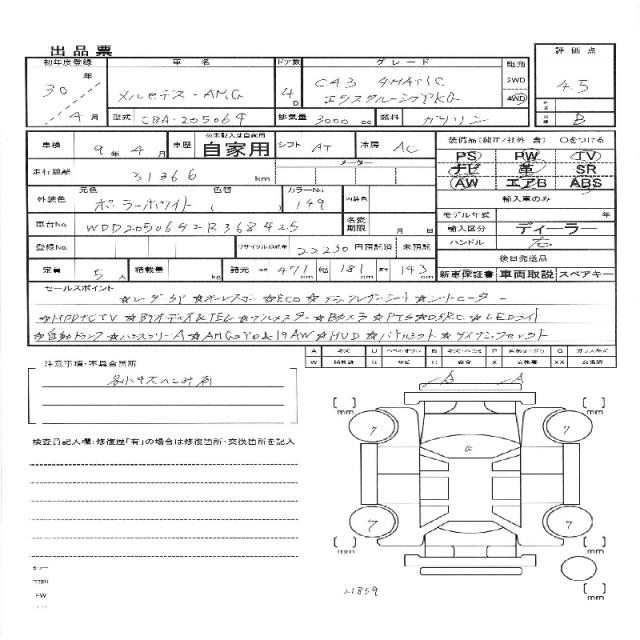 出品票
初年度登録 車名 ドア数 グレード 駆動 評価点
30年 4月 メルセデス-AMG 4D C43 4MATIC 2WD 4WD 4.5
エクスクルーシブPKG
型式 CBA-205064 排気量 3000 cc 燃料 ガソリン B
車検 9年4月 車歴 ※未記入は自家用 自家用 シフト AT 冷房 AC
装備品(純正/社外 含) Oをつける
PS PW TV
ナビ 革 SR
AW エアB ABS
走行距離 31266 km メーター
輸入車のみ
元色 色替 カラーNo. 内装色
外装色 ポーラーホワイト ( ) 149
モデル年式 年
車台No. WDD2050642R368425 名変期限 月 日
輸入区分 ディーラー
登録No. リサイクル預託金 22230 円預託済 未預託
ハンドル 右
定員 5人 積載量 kg 諸元 471 幅 181 143
後日発送品
新車保証書 車両取説 スペアキー
セールスポイント
☆レーダーSP☆オールレザー☆ECO☆メモリーシート☆シートヒーター
☆HDDナビTV☆BTオーディオ&TEL☆ブルメスター☆Bカメラ☆PTS☆DSRC☆LEDライト
☆自動トランク☆AMGエアロ&19AW☆HUD☆パドルシフト
A キズ U B キズ・ヘコミ P G ガラスキズ
W S サビ C 腐食 X XX
注意事項・不具合箇所
各小キズヘコミ有
検査員記入欄:修復歴「有」の場合は修復箇所・交換箇所を記入
A A
[ ] mm [ ] mm
7 7
G
7 7
[ ] mm [ ] mm
[ ] mm
21859